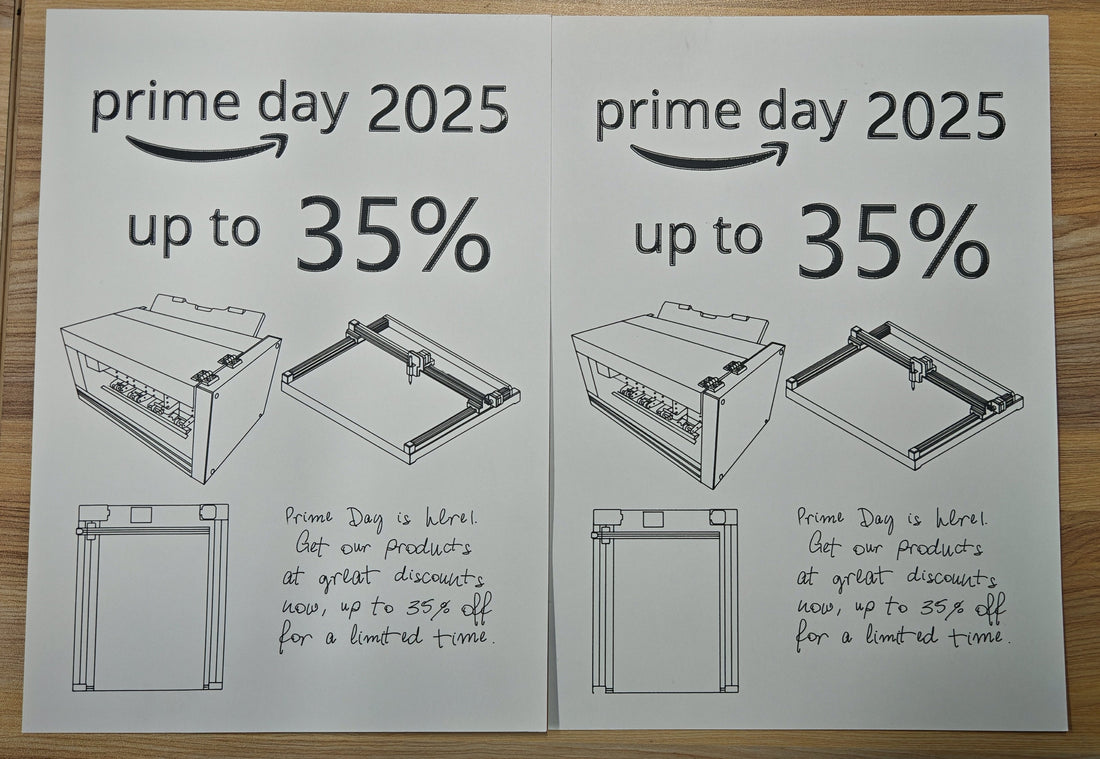 prime day 2025
up to 35%
Prime Day is here!.
Get our products
at great discounts
now, up to 35% off
for a limited time.
prime day 2025
up to 35%
Prime Day is here!.
Get our products
at great discounts
now, up to 35% off
for a limited time.